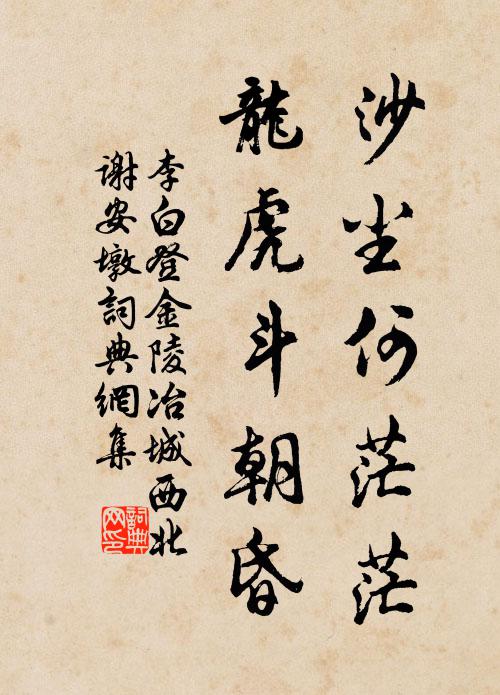 沙尘何茫茫
龍虎斗朝昏
李白登金陵冶城西北
謝安墩詞典網集
詞典网印